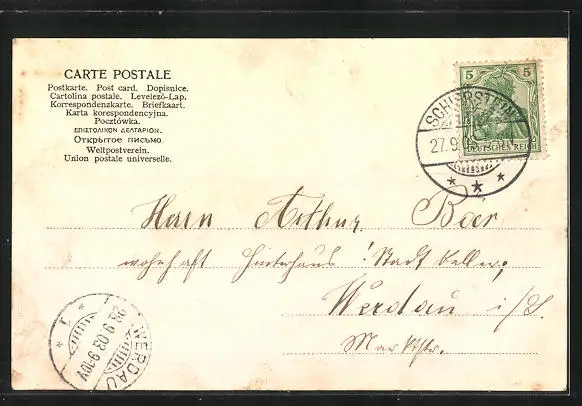 CARTE POSTALE
Postkarte. Post card. Dopisnice.
Cartolina postale. Levelező-Lap.
Korrespondenzkarte. Briefkaart.
Karta korespondencyjna.
Pocztówka.
ΕΠΙΣΤΟΛΙΚΟΝ ΔΕΛΤΑΡΙΟΝ.
Открытое письмо.
Weltpostverein.
Union postale universelle.
5 5
DEUTSCHES REICH
SCHIERSTEIN
27.9.03
Herrn Arthur Baer
wohnhaft Hinterhaus Stadt Keller,
Werdau i/S.
Markstr.
WERDAU
28.9.03.9-10V.